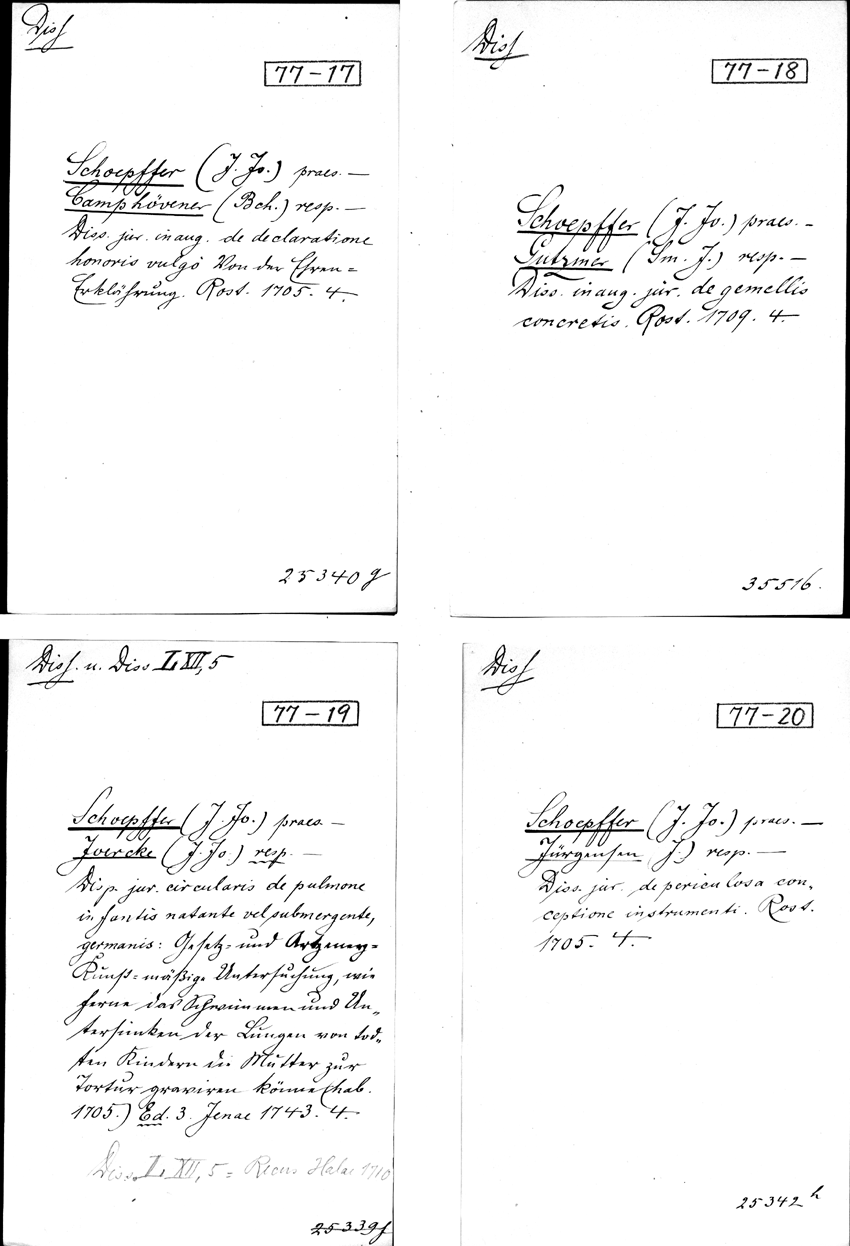 Diss
77-17
Schoepffer (J. Jo.) praes. —
Camphövener (Bch.) resp. —
Diss. jur. inaug. de declaratione
honoris vulgò Von der Ehren=
Erklährung. Rost. 1705. 4.
25340 g
Diss
77-18
Schoepffer (J. Jo.) praes. —
Gutzmer (Sm. J.) resp. —
Diss. inaug. jur. de gemellis
concretis. Rost. 1709. 4.
35516.
Diss. u. Diss L XII, 5
77-19
Schoepffer (J. Jo.) praes. —
Joercke (J. Jo.) resp. —
Disp. jur. circularis de pulmone
infantis natante vel submergente,
germanis: Gesetz= und Artzeney=
Kunst=mäßige Untersuchung, wie
ferne das Schwimmen und Un=
tersinken der Lungen von tod=
ten Kindern die Mutter zur
Tortur graviren könne (hab.
1705.) Ed. 3. Jenae 1743. 4.
Diss. L XII, 5 = Halae 1710
25339f
Diss
77-20
Schoepffer (J. Jo.) praes. —
Jürgensen J.) resp. —
Diss. jur. de periculosa con=
ceptione instrumenti. Rost.
1705. 4.
25342 h